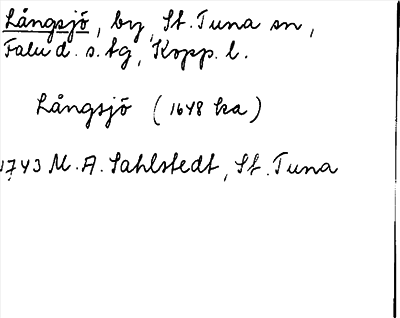 Långsjö, by, St. Tuna sn,
Falu d. s. tg, Kopp. l.
Långsjö (1648 ka)
1743 M. A. Sahlstedt, St. Tuna